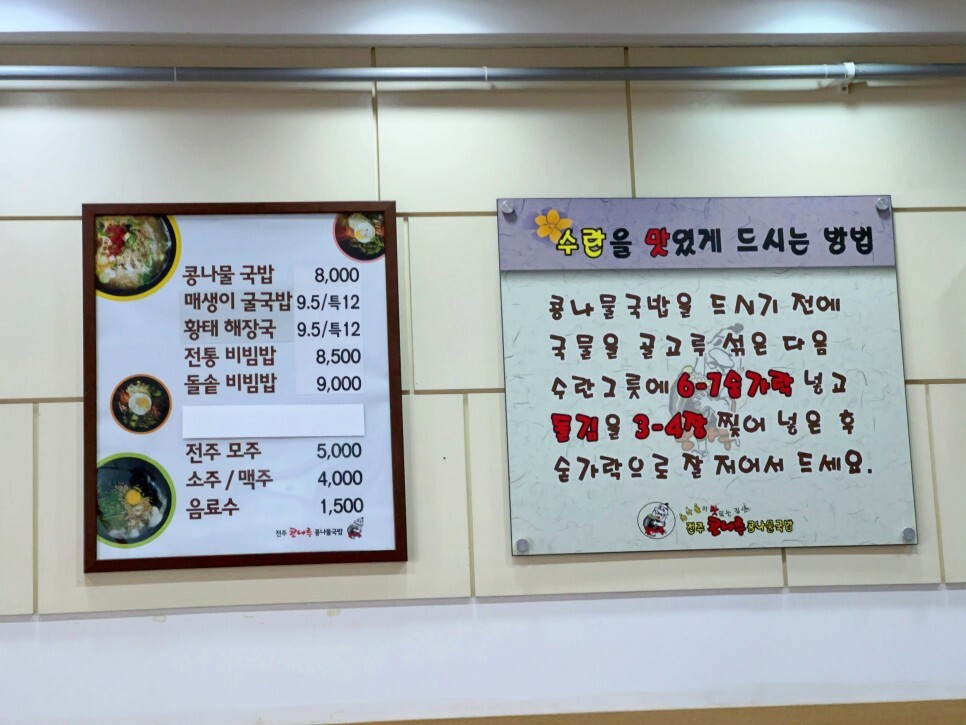 콩나물 국밥 8,000
매생이 굴국밥 9.5/특12
황태 해장국 9.5/특12
전통 비빔밥 8,500
돌솥 비빔밥 9,000
전주 모주 5,000
소주 / 맥주 4,000
음료수 1,500
전주 콩나루 콩나물국밥
수란을 맛있게 드시는 방법
콩나물국밥을 드시기 전에
국물을 골고루 섞은 다음
수란그릇에 6-7숟가락 넣고
돌김을 3-4장 찢어 넣은 후
숟가락으로 잘 저어서 드세요.
전주 콩나루 콩나물국밥